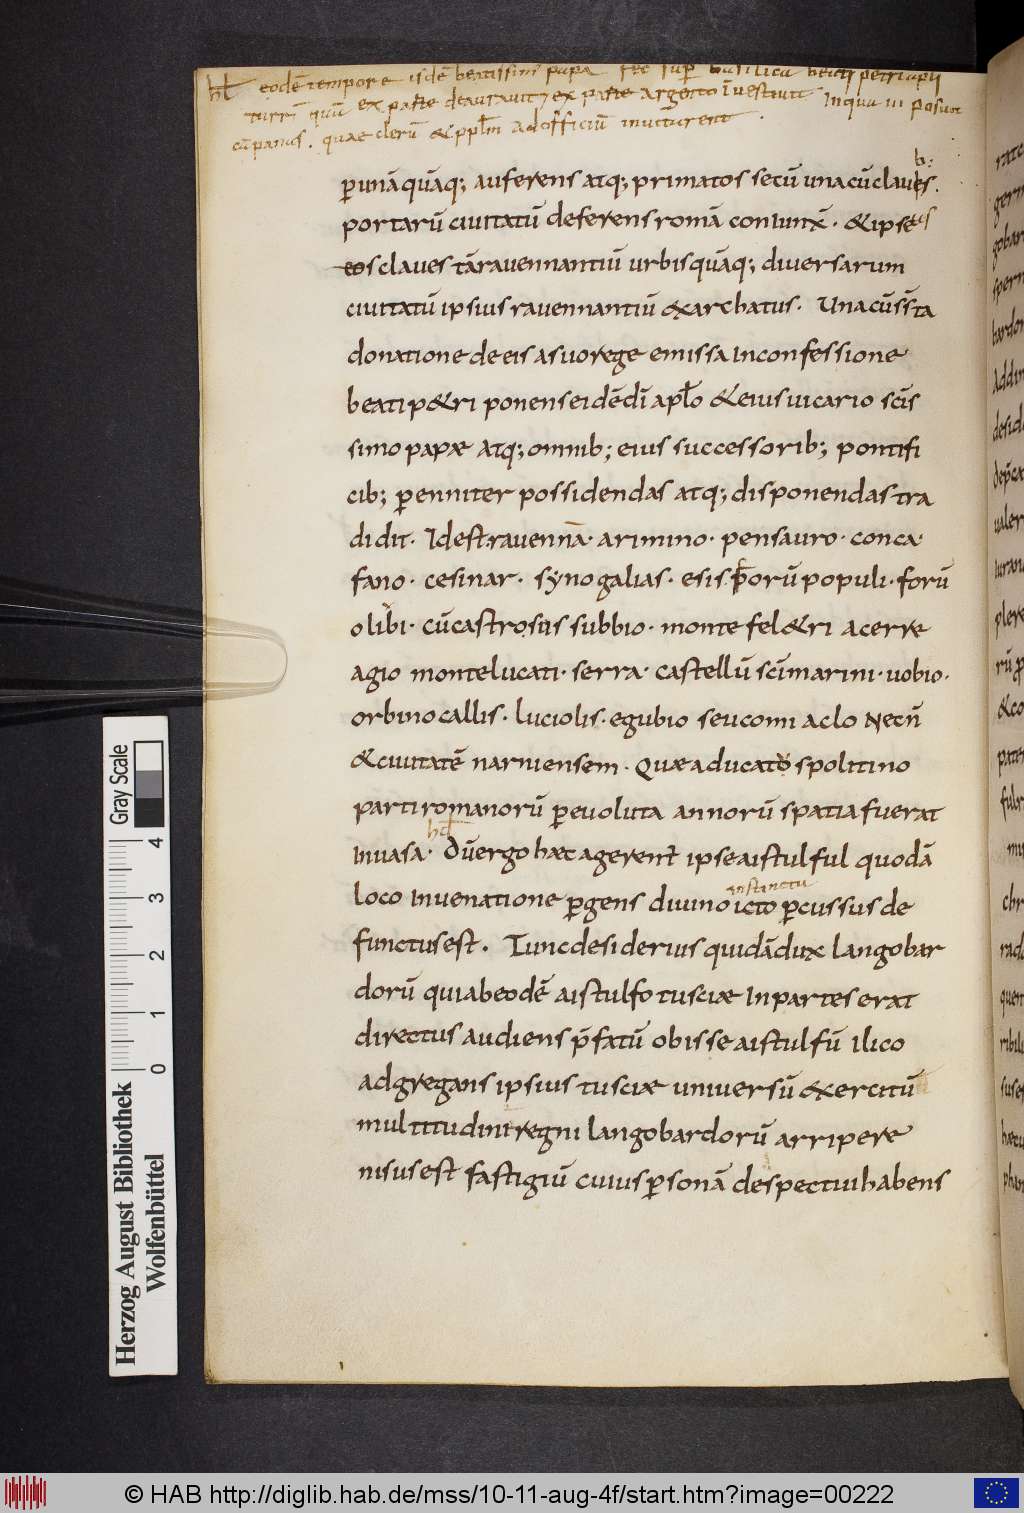 hł eodē tempore isdē beatissim papa fec sup basilica beati petri apłi
turrē quā ex parte deauravit & ex parte argento īvestivit In qua iii posuit
cāpanas. quae clerū & ppłm ad officiū invitarent.
p̱unāquāq; auferens atq; primatos secū una cū claues. h:
portarū ciuitatū deferens romā coniunx̄. & ipse tas
eos claues tā rauennantiū urbis quāq; diuersarum
ciuitatū ipsius rauennantiū exarchatus. Una cū ss̄ta
donatione de eis a suo rege emissa In confessione
beati p&ri ponens eidē dī apło & eius uicario scīs
simo papae atq; omnib; eius successorib; pontifi
cib; p̱enniter possidendas atq; disponendas tra
didit. Id est rauennā. arimino. pensauro. conca.
fano. cesinar. synogalias. esis. forū populi. forū
olibi. cū castro scīs subbio. monte fel&ri acerre
agio monte lucati. serra. castellū scī marini. uobio.
orbino callis. luciolis. egubio seu comi aclo Necn̄
& ciuitatē narniensem. Quae a ducato spolitino
parti romanorū p̱ euoluta annorū spatia fuerat
hđ
Inuasa. Dū ergo haec agerent ipse aistulful quodā
instinctu
loco In uenatione p̱gens diuino icto p̱cussus de
functus est. Tunc desiderius quidā dux langobar
dorū qui ab eodē aistulfo tusciae In partes erat
directus audiens p̄fatū obisse aistulfū ilico
adgregans ipsius tusciae uniuersū exercitū
multitudini regni langobardorū arripere
nisus est fastigiū cuius p̱sonā despectui habens
Gray Scale
4
3
2
1
0
Herzog August Bibliothek
Wolfenbüttel
© HAB http://diglib.hab.de/mss/10-11-aug-4f/start.htm?image=00222